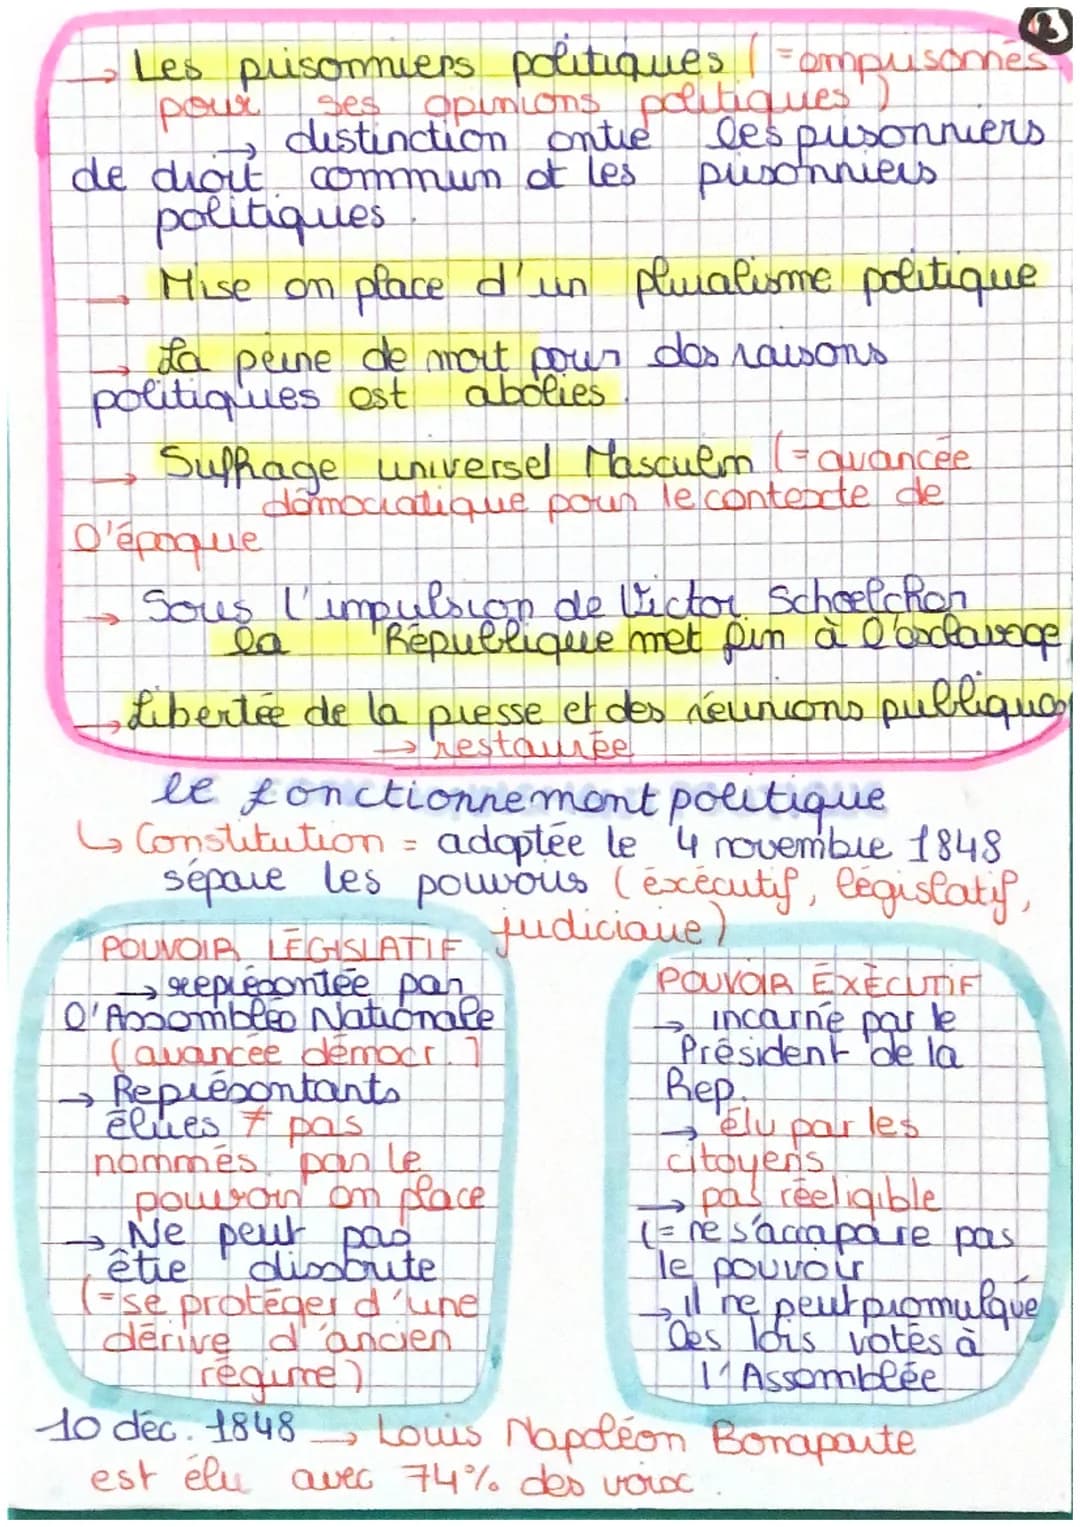 2
→ Les prisonniers politiques (=emprisonnés
pour ses opinions politiques)
→ distinction entre les prisonniers
de droit commun et les prisonniers
politiques.
→ Mise en place d'un pluralisme politique
→ La peine de mort pour des raisons
politiques est abolies.
→ Suffrage universel Masculin (=avancée
démocratique pour le contexte de
l'époque
→ Sous l'impulsion de Victor Schoelcher
la République met fin à l'esclavage
→ Libertée de la presse et des réunions publiques
→ restaurée
le fonctionnement politique
↳ Constitution = adoptée le 4 novembre 1848
sépare les pouvoirs (éxécutif, législatif,
judiciaire)
POUVOIR LÉGISLATIF
→ représentée par
l'Assemblée Nationale
(avancée démocr.)
→ Représentants
élues ≠ pas
nommés par le
pouvoir en place
→ Ne peut pas
être dissoute
(=se protéger d'une
dérive d'ancien
régime)
POUVOIR ÉXÉCUTIF
→ incarné par le
Président de la
Rep.
→ élu par les
citoyens
→ pas rééligible
(= ne s'accapare pas
le pouvoir
→ il ne peut promulgué
les lois votés à
l'Assemblée
10 déc. 1848 → Louis Napoléon Bonaparte
est élu avec 74% des voix.